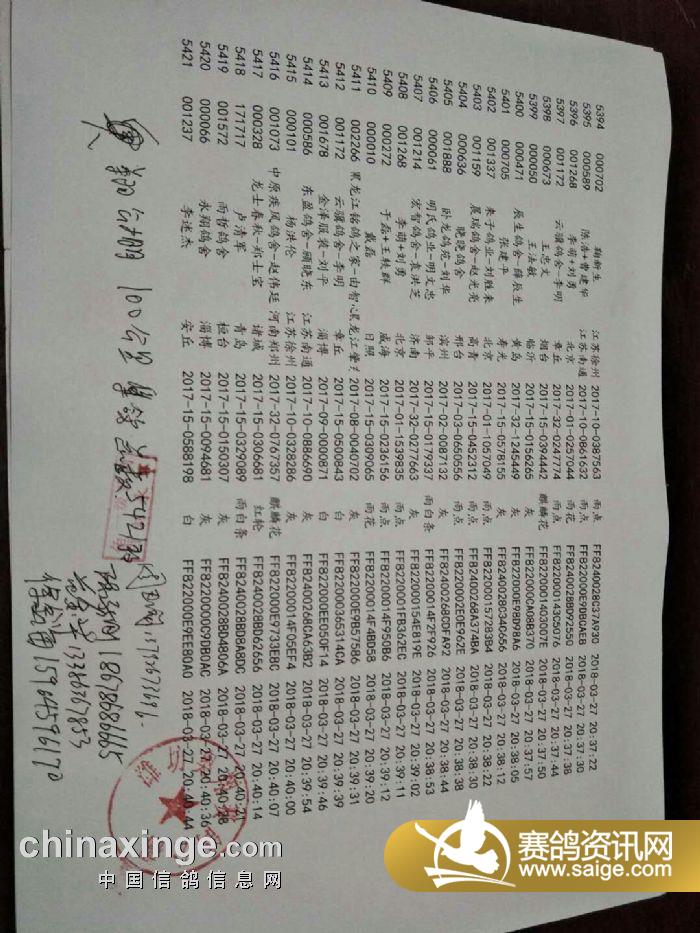 5394 000702 鞠新生 江苏徐州 2017-10-0387563 雨点 FFB240028C37A930 2018-03-27 20:37:22
5395 000589 陈浩+曹建华 江苏南通 2017-10-0861632 雨点 FFB22000E9B80AEB 2018-03-27 20:37:30
5396 001268 李萌+刘勇 北京 2017-01-0257044 雨花 FFB240028BD92550 2018-03-27 20:37:38
5397 001172 云骥鸽舍-李明 章丘 2017-32-0247774 雨点 FFB2200143C5076 2018-03-27 20:37:44
5398 000673 王忠文 烟台 2017-15-0394442 麒麟花 FFB220001403007E 2018-03-27 20:37:50
5399 000050 王法敏 临沂 2017-15-0156265 灰 FFB22000CA08B370 2018-03-27 20:37:57
5400 000471 辰生鸽舍-薛辰生 黄岛 2017-32-1245449 灰 FFB22000E9BD98A6 2018-03-27 20:38:05
5401 000705 张建平 寿光 2017-15-0578155 灰 FFB2400280349656 2018-03-27 20:38:12
5402 001337 朱子鸽业-刘胜朱 北京 2017-01-1057049 雨点 FFB22000157283B4 2018-03-27 20:38:22
5403 001159 晨瑞鸽舍-赵光亮 高青 2017-15-0452312 雨点 FFB240026BA374BA 2018-03-27 20:38:30
5404 000636 晓晓鸽舍 邢台 2017-03-0650556 雨点 FFB220002E0F962E 2018-03-27 20:38:38
5405 001888 卧龙鸽苑-刘华 滨州 2017-02-0087132 灰 FFB240026BCDFA92 2018-03-27 20:38:44
5406 000061 明氏鸽业-明文忠 邹平 2017-15-0179337 雨白条 FFB2200014F2F926 2018-03-27 20:38:53
5407 001214 宏智鸽舍-袁洪芝 济南 2017-32-0277663 灰 FFB22000154E819E 2018-03-27 20:39:02
5408 001268 李萌+刘勇 北京 2017-01-1539835 雨点 FFB220001FB362EC 2018-03-27 20:39:11
5409 000272 于磊+王轶群 威海 2017-15-0236156 雨点 FFB2200014F950B6 2018-03-27 20:39:12
5410 000010 戴磊 日照 2017-15-0309065 雨花 FFB2200014F4BD5B 2018-03-27 20:39:20
5411 002266 黑龙江铭鸽之家-由智心 黑龙江肇 2017-08-0040702 灰 FFB22000E9B57586 2018-03-27 20:39:31
5412 001172 云骥鸽舍-李明 章丘 2017-15-0500843 白 FFB220003653140A 2018-03-27 20:39:39
5413 001678 金泽服装-刘平 淄博 2017-09-0000871 白 FFB22000EE05DF14 2018-03-27 20:39:46
5414 000586 东盈鸽舍-顾晓东 江苏南通 2017-10-0886690 灰 FFB240026BCA63B2 2018-03-27 20:39:54
5415 000101 杨洪伦 江苏徐州 2017-10-0328286 灰 FFB2200014F05EF4 2018-03-27 20:40:00
5416 001073 中原疾风鸽舍-赵伟廷 河南郑州 2017-32-0767357 麒麟花 FFB22000E9733EBC 2018-03-27 20:40:07
5417 000328 龙士春秋-郑士宝 诸城 2017-15-0306681 红轮 FFB240028BD62656 2018-03-27 20:40:14
5418 171717 卢清军 青岛 2017-15-0329089 雨白条 FFB240028BD8A8DC 2018-03-27 20:40:21
5419 001572 雨哲鸽舍 桓台 2017-15-0150307 灰 FFB240028BD4806A 2018-03-27 20:40:28
5420 000066 永翔鸽舍 淄博 2017-15-0094681 灰 FFB2200009DB0AC 2018-03-27 20:40:36
5421 001237 李述杰 安丘 2017-15-0588198 白 FFB22000E9EE80A0 2018-03-27 20:40:44
100公里 集鸽 羽数5421羽
18678686665
13386367853
15964596170
chinaxinge.com
中国信鸽信息网
赛鸽资讯网
www.saige.com